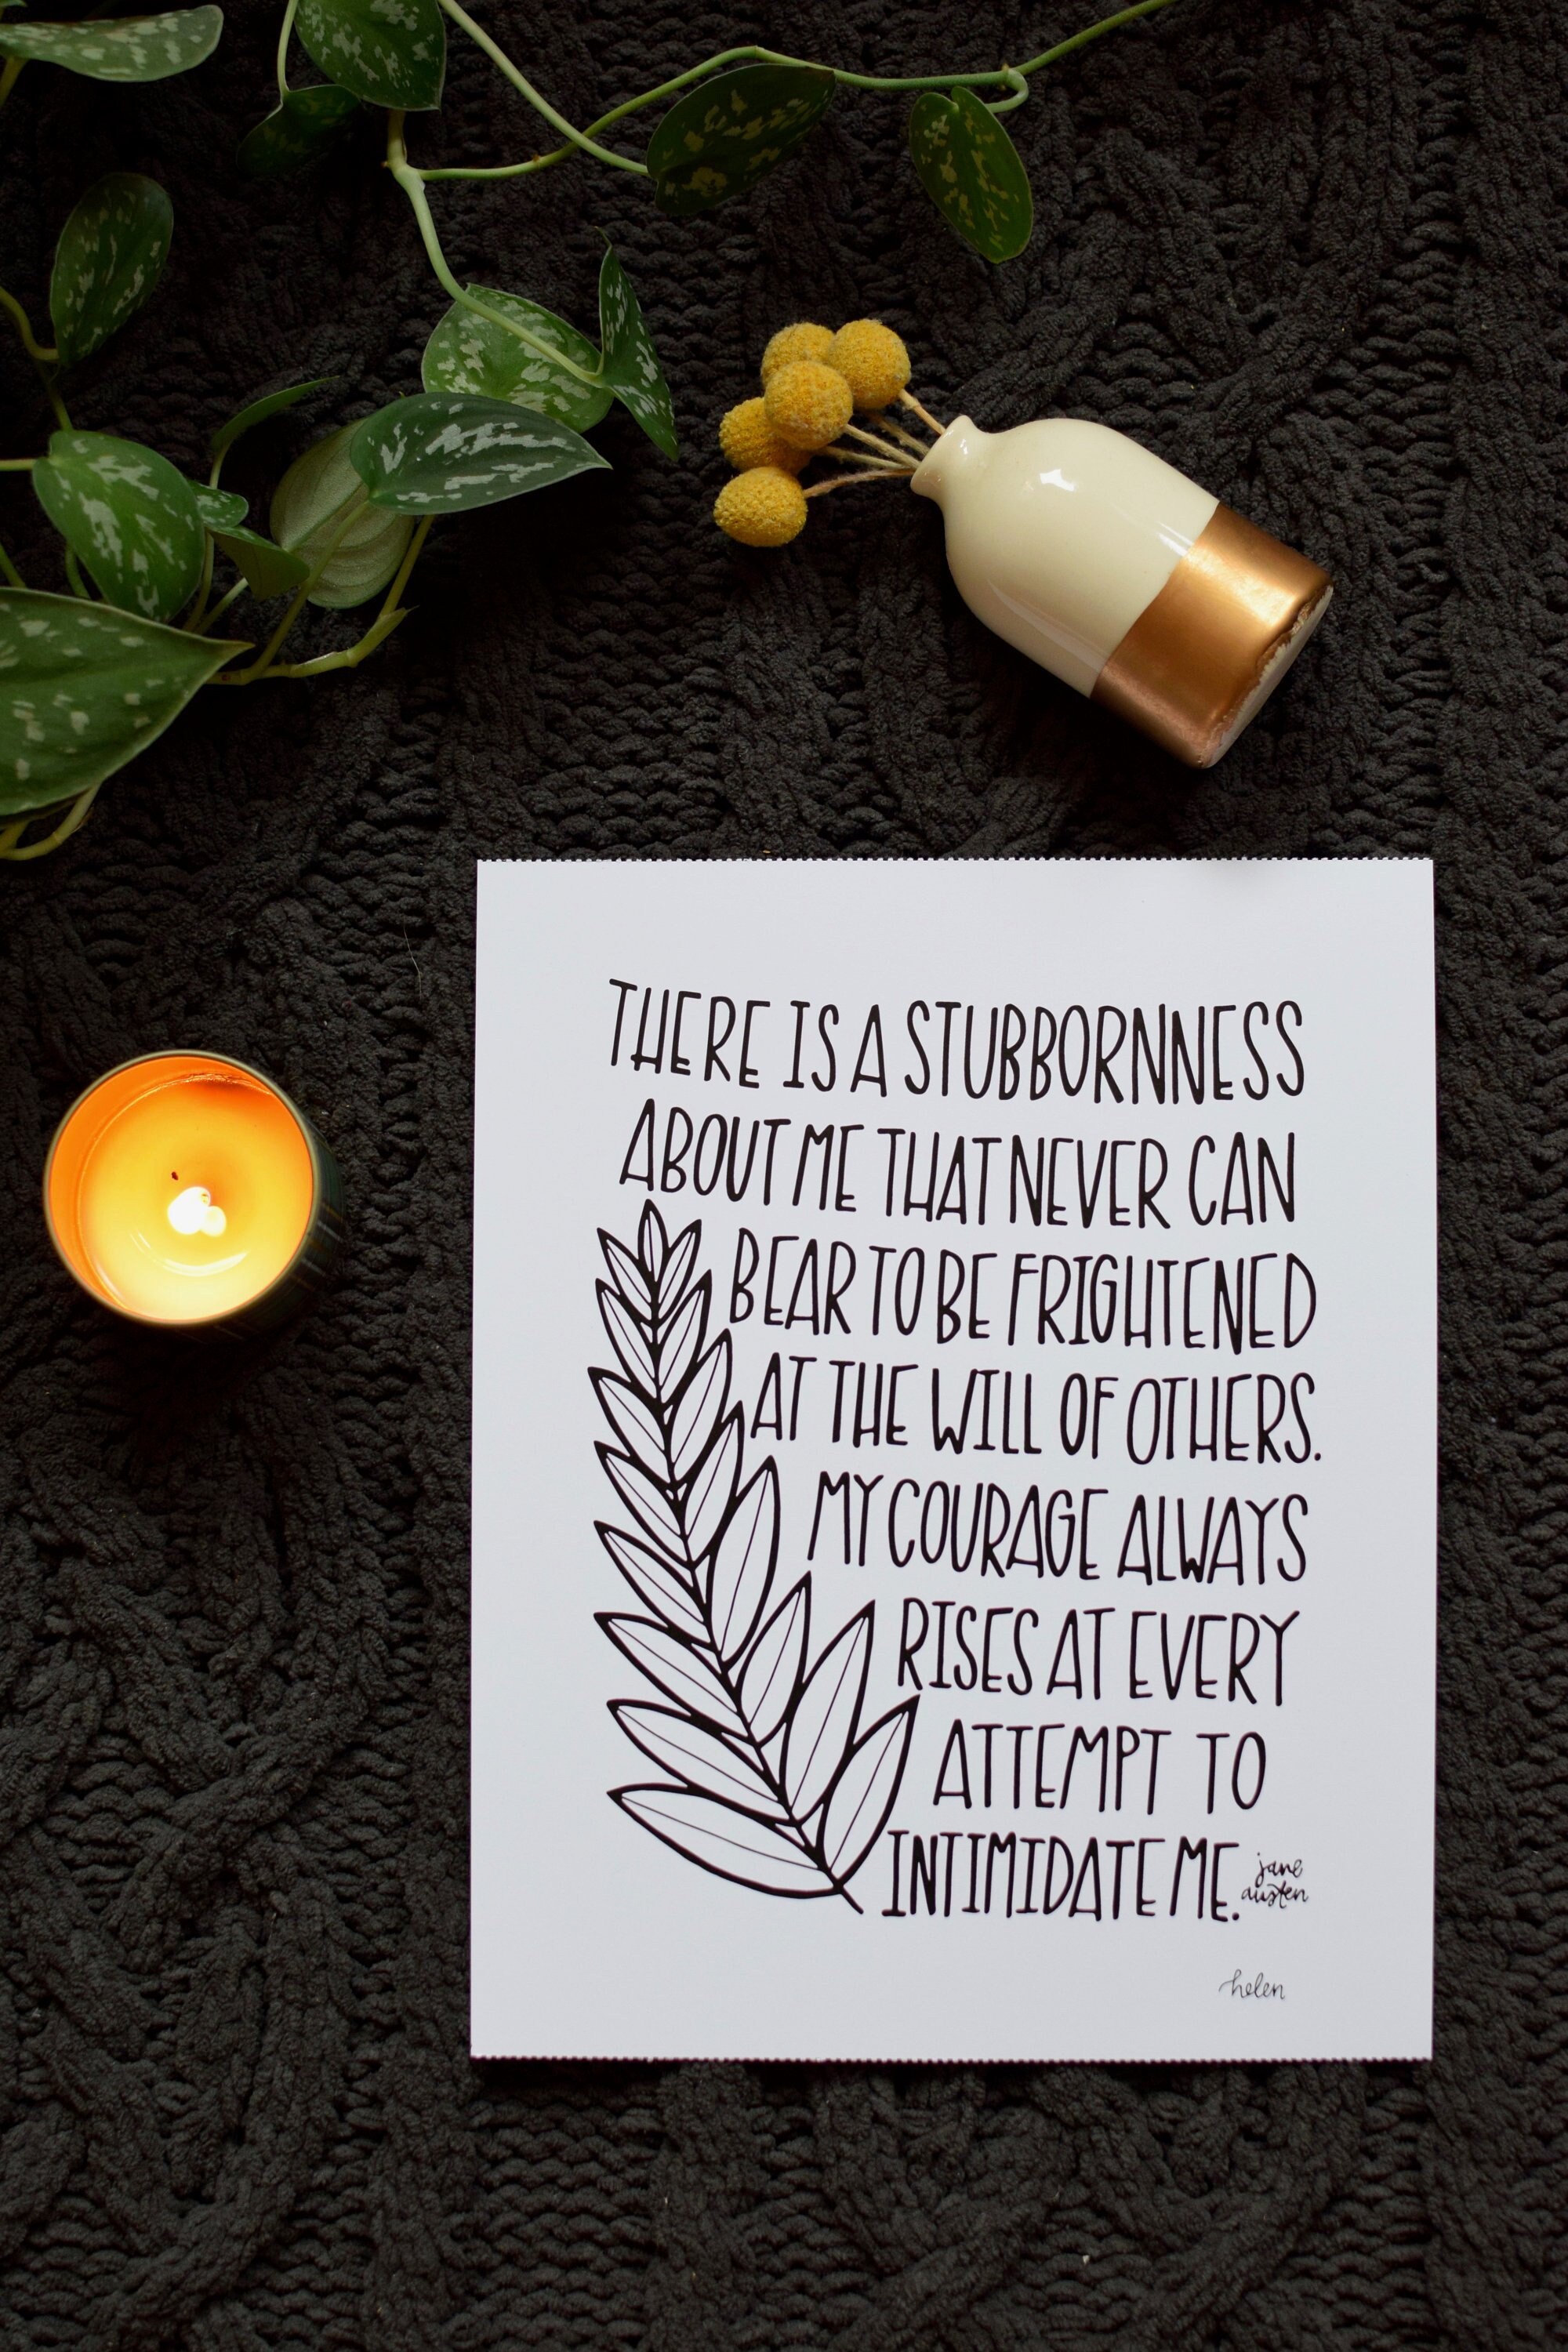 THERE IS A STUBBORNNESS
ABOUT ME THAT NEVER CAN
BEAR TO BE FRIGHTENED
AT THE WILL OF OTHERS.
MY COURAGE ALWAYS
RISES AT EVERY
ATTEMPT TO
INTIMIDATE ME.
jane
austen
helen